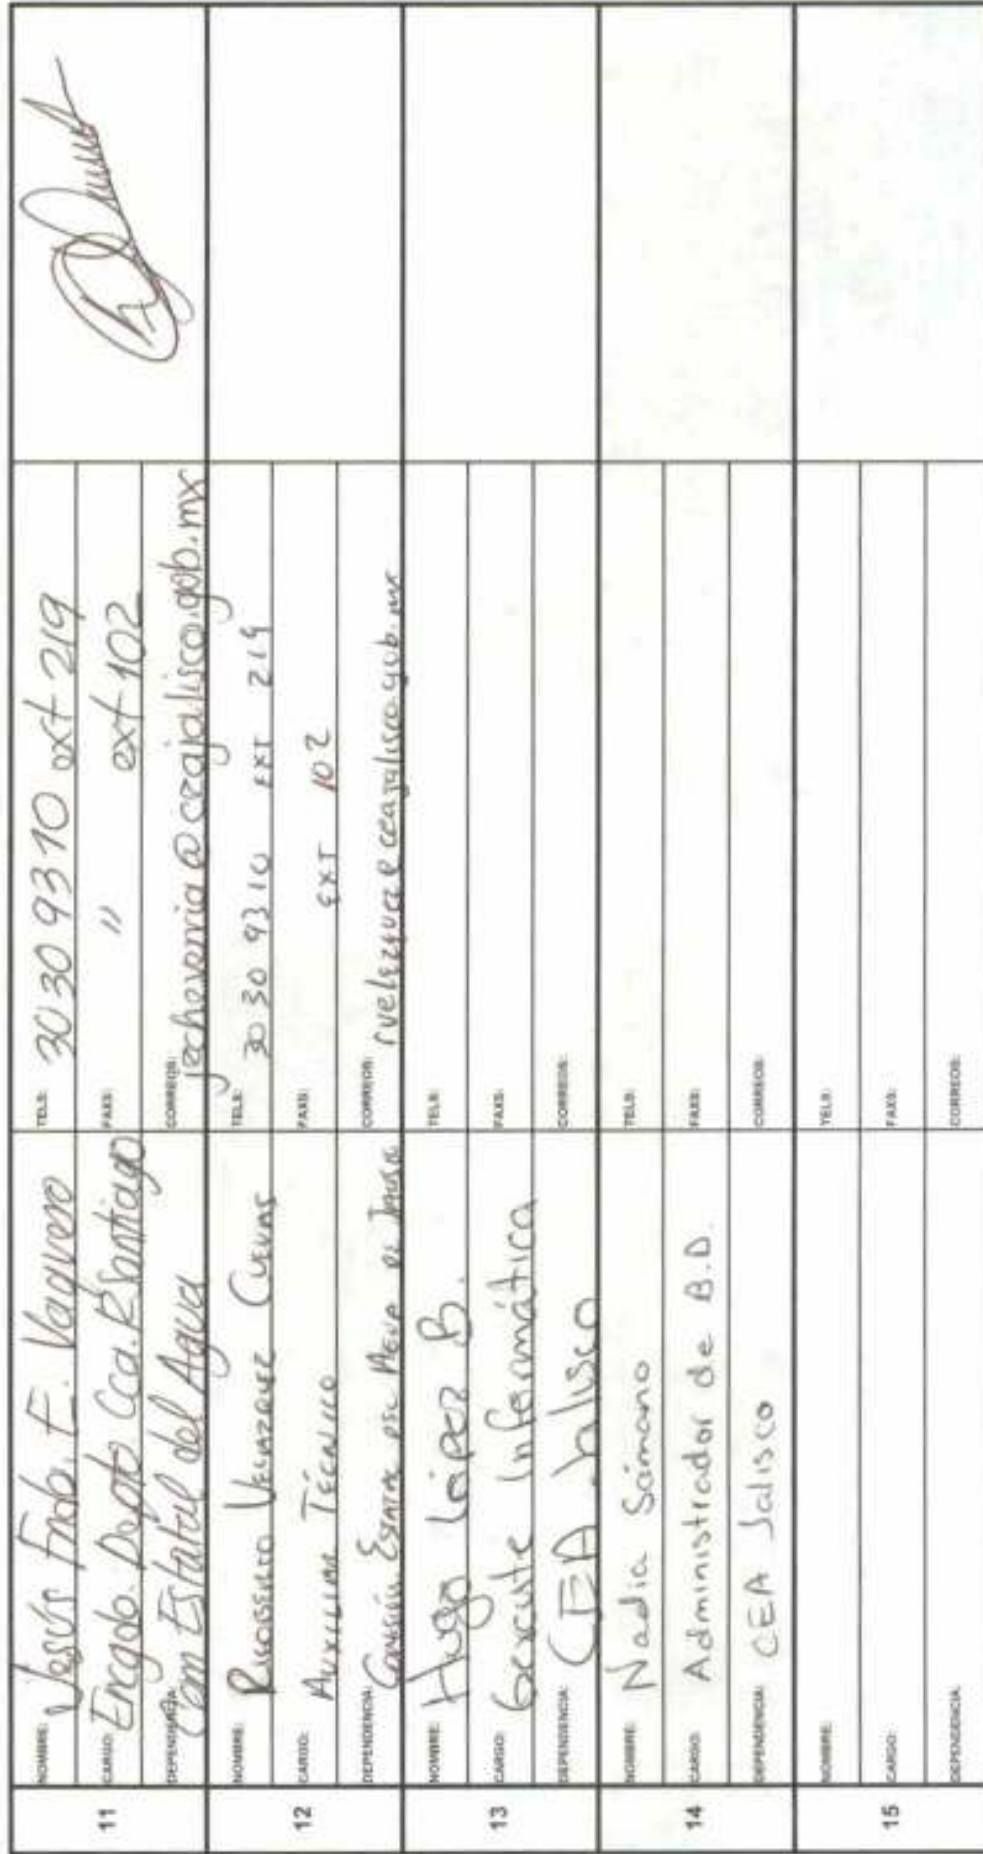 11
NOMBRE: Jesús Fnob. E. Vaquero
CARGO: Encgdo. Depto Cca. R Santiago
DEPENDENCIA: Com Estatal del Agua
TELS: 30 30 93 10 ext 219
FAXS: " ext 102
CORREOS: jecheverria@ceajalisco.gob.mx
12
NOMBRE: Rigoberto Velazquez Cuevas
CARGO: Auxiliar Técnico
DEPENDENCIA: Comisión Estatal del Agua de Jalisco
TELS: 30 30 93 10 EXT 219
FAXS: EXT 102
CORREOS: rvelezquez@ceajalisco.gob.mx
13
NOMBRE: Hugo López B.
CARGO: Gerente Informática
DEPENDENCIA: CEA Jalisco
TELS:
FAXS:
CORREOS:
14
NOMBRE: Nadia Sámano
CARGO: Administrador de B.D.
DEPENDENCIA: CEA Jalisco
TELS:
FAXS:
CORREOS:
15
NOMBRE:
CARGO:
DEPENDENCIA:
TELS:
FAXS:
CORREOS: